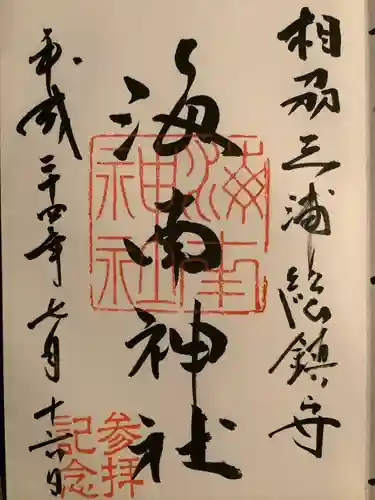 相刕三浦総鎮守
海南神社
平成二十四年七月十六日
海南神社
参拝
記念